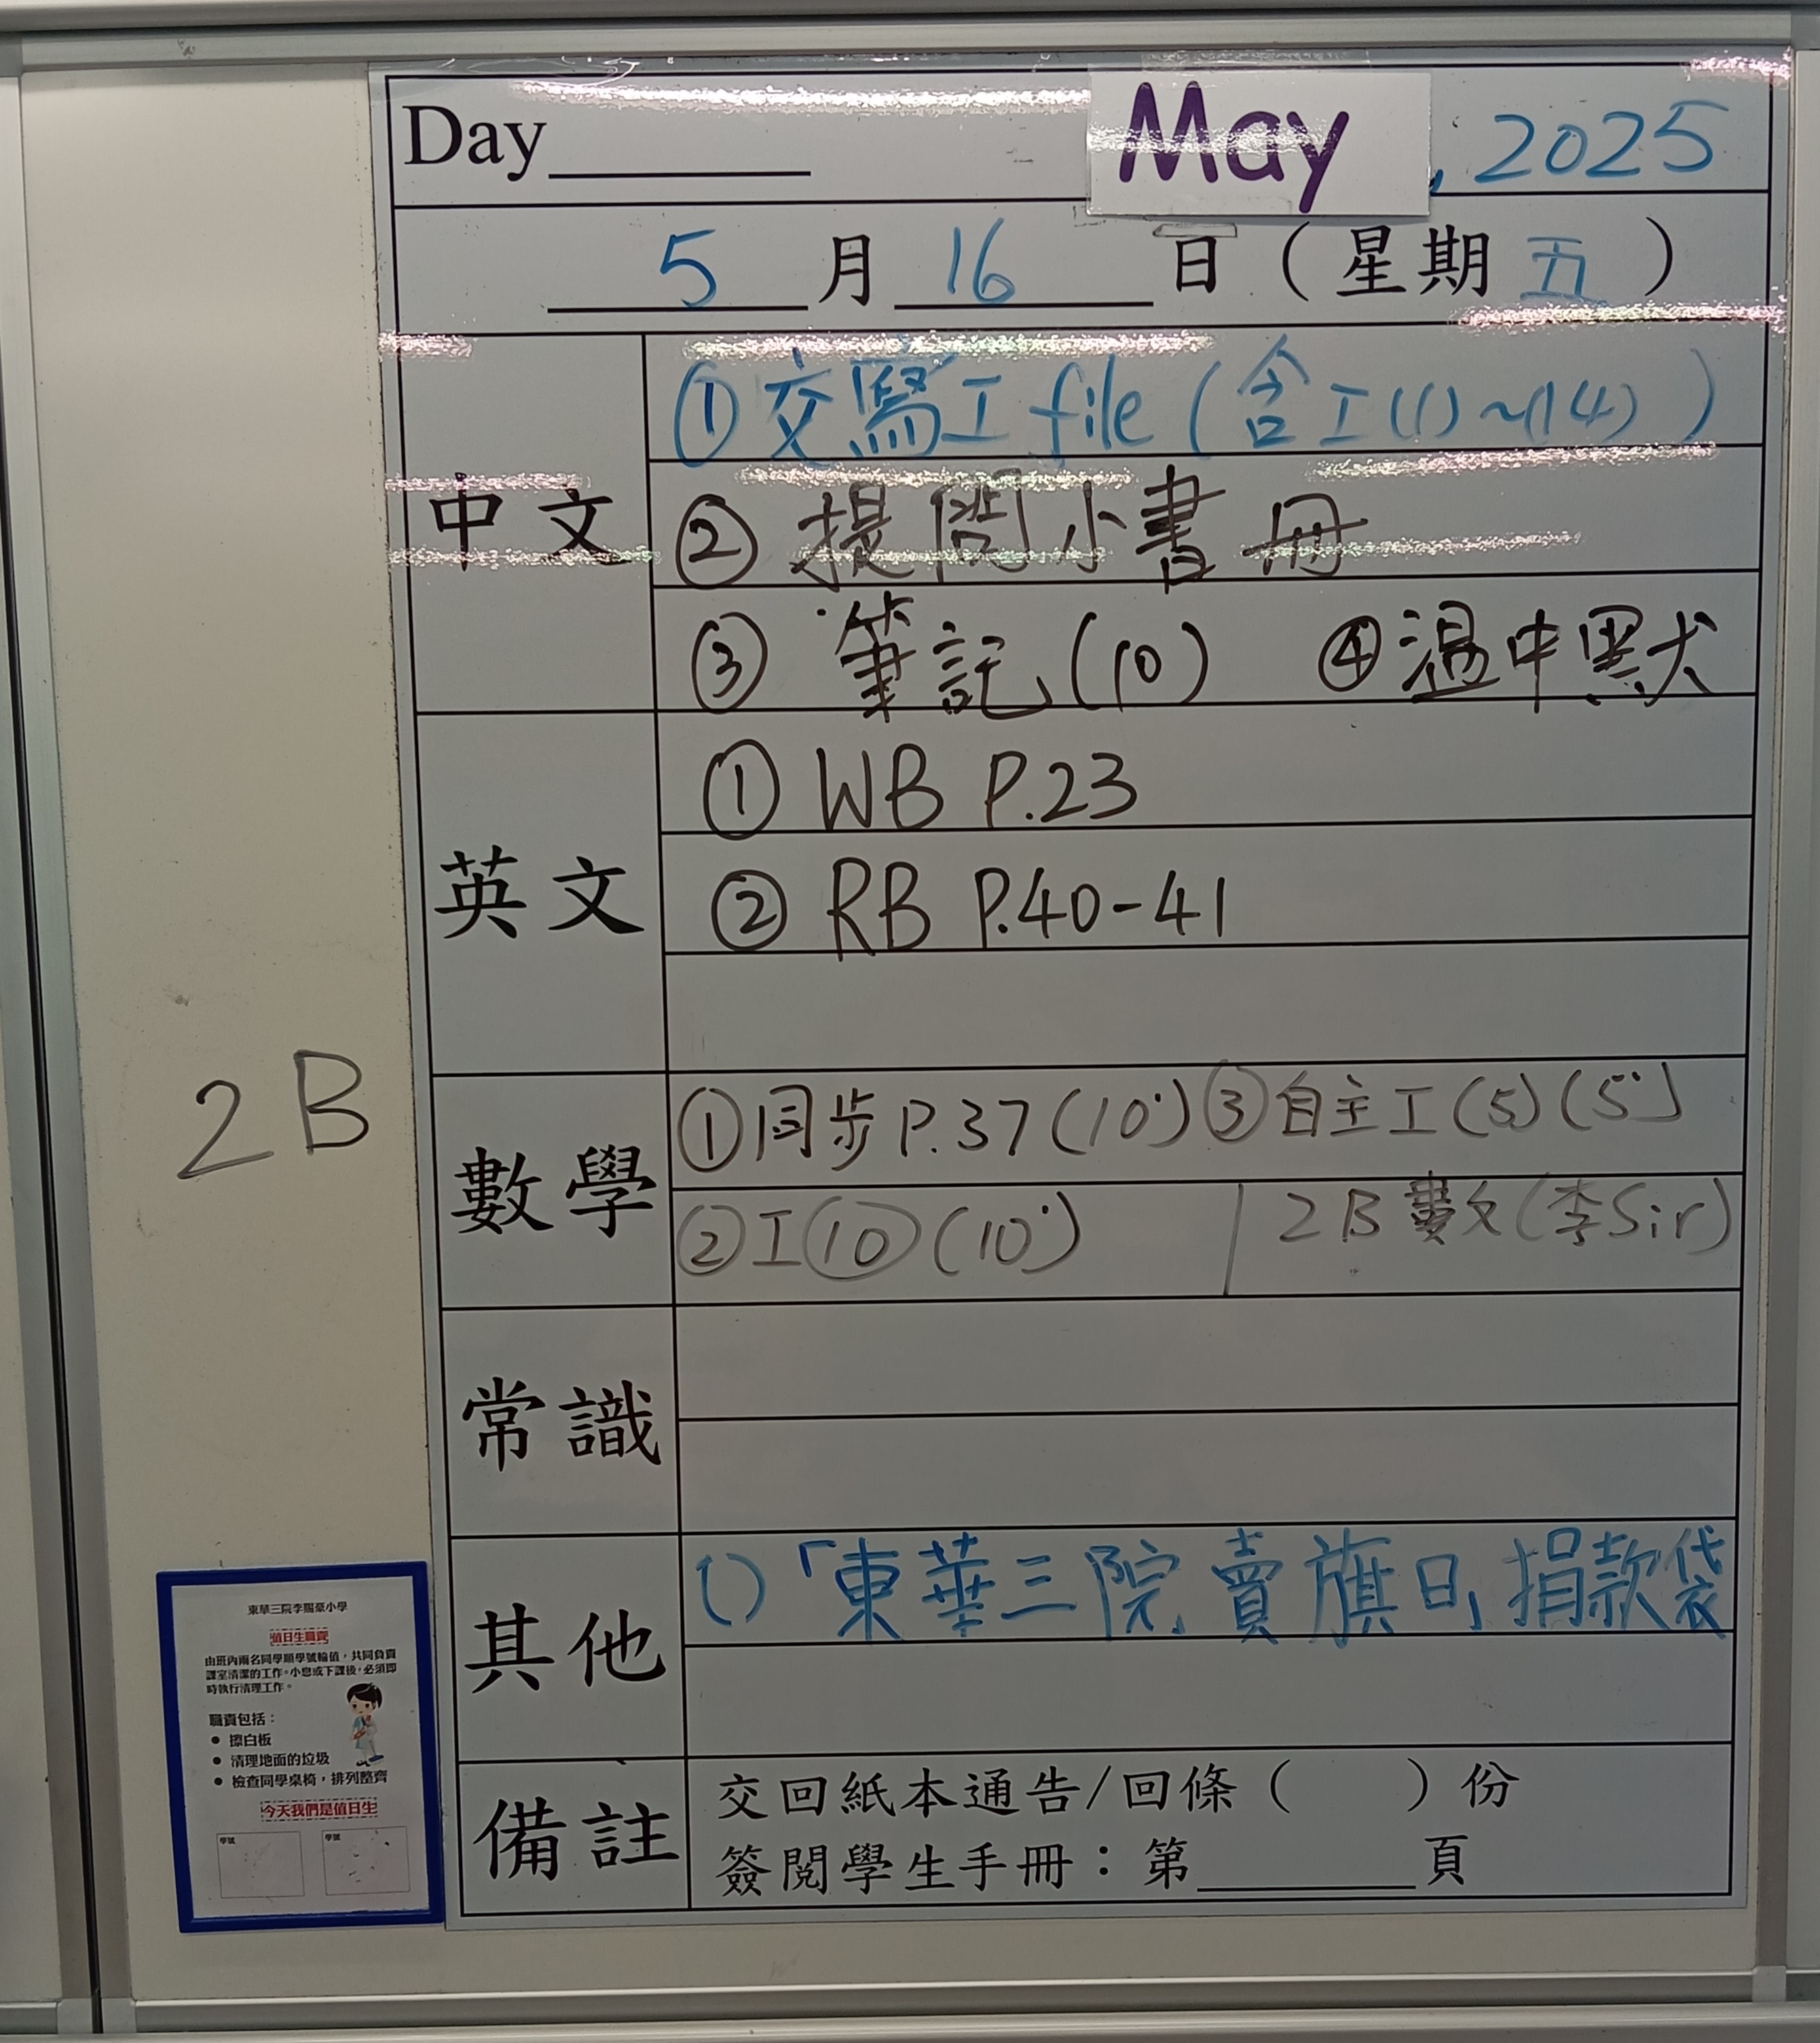 Day
May , 2025
5 月 16 日 ( 星期 五 )
中文
① 交寫工 file ( 含工(1)~(14) )
② 提問小書冊
③ 筆記 (10) ④ 溫中默
英文
① WB P.23
② RB P.40-41
2B
數學
① 同步 P.37 (10') ③ 自主工(5) (5')
② 工(10) (10') | 2B 數 (李Sir)
常識
其他
1) 「東華三院賣旗日」捐款袋
備註
交回紙本通告/回條 ( ) 份
簽閱學生手冊：第 頁
東華三院李賜豪小學
值日生職責
由班內兩名同學順學號輪值，共同負責
課室清潔的工作。小息或下課後，必須即
時執行清理工作。
職責包括：
● 擦白板
● 清理地面的垃圾
● 檢查同學桌椅，排列整齊
今天我們是值日生
學號 學號